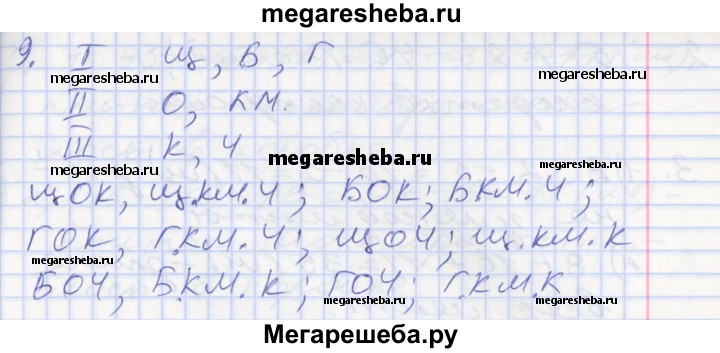 megaresheba.ru
9. I Щ, Б, Г
megaresheba.ru megaresheba.ru
II О, КМ.
III К, Ч
megaresheba.ru megaresheba.ru
ЩОК, Щ.КМ.Ч; БОК; БКМ.Ч;
ГОК, Г.КМ.Ч; ЩОЧ; Щ.КМ.К
megaresheba.ru megaresheba.ru
БОЧ, Б.КМ.К; ГОЧ; Г.КМ.К
megaresheba.ru megaresheba.ru
Мегарешеба.ру